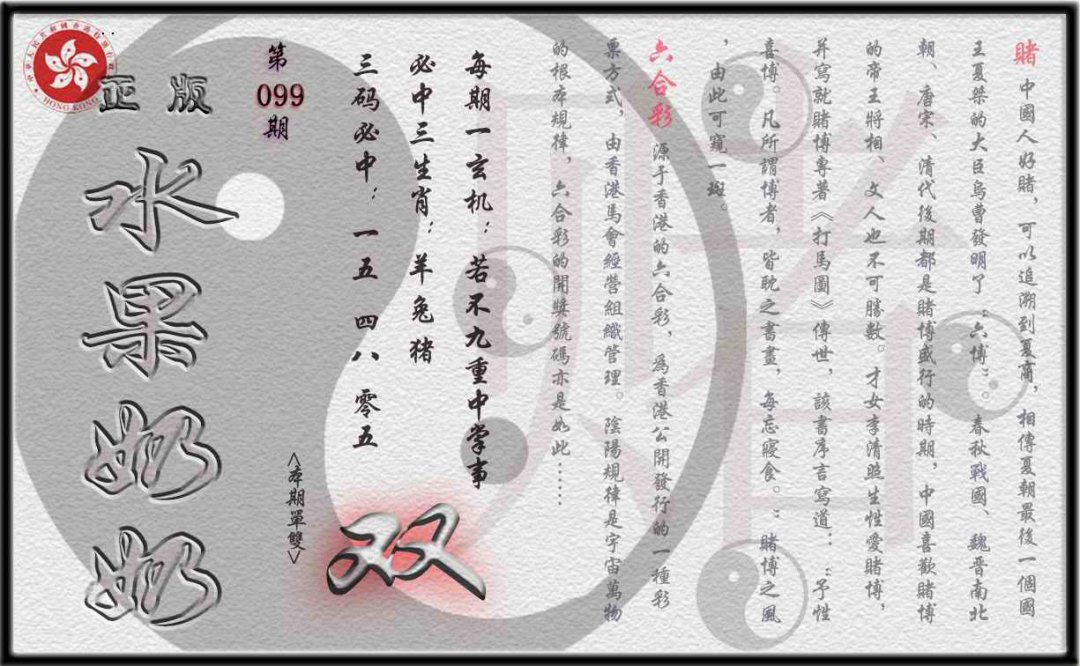 賭 中國人好賭，可以追溯到夏商，相傳夏朝最後一個國
王夏桀的大臣烏曹發明了“六博”。春秋戰國、魏晋南北
朝、唐宋、清代後期都是賭博盛行的時期，中國喜歡賭博
的帝王將相、文人也不可勝數。才女李清照生性愛賭博，
并寫就賭博專著《打馬圖》傳世，該書序言寫道：“予性
喜博。凡所謂博者，皆耽之書畫，每忘寢食。”賭博之風
，由此可窺一斑。
六合彩 源于香港的六合彩，爲香港公開發行的一種彩
票方式，由香港馬會經營組織管理。陰陽規律是宇宙萬物
的根本規律，六合彩的開獎號碼亦是如此……
每期一玄机：若不九重中掌事
必中三生肖：羊兔猪
三码必中：一五 四八 零五
双
<本期單雙>
第
099
期
正版
水果奶奶
HONG KONG